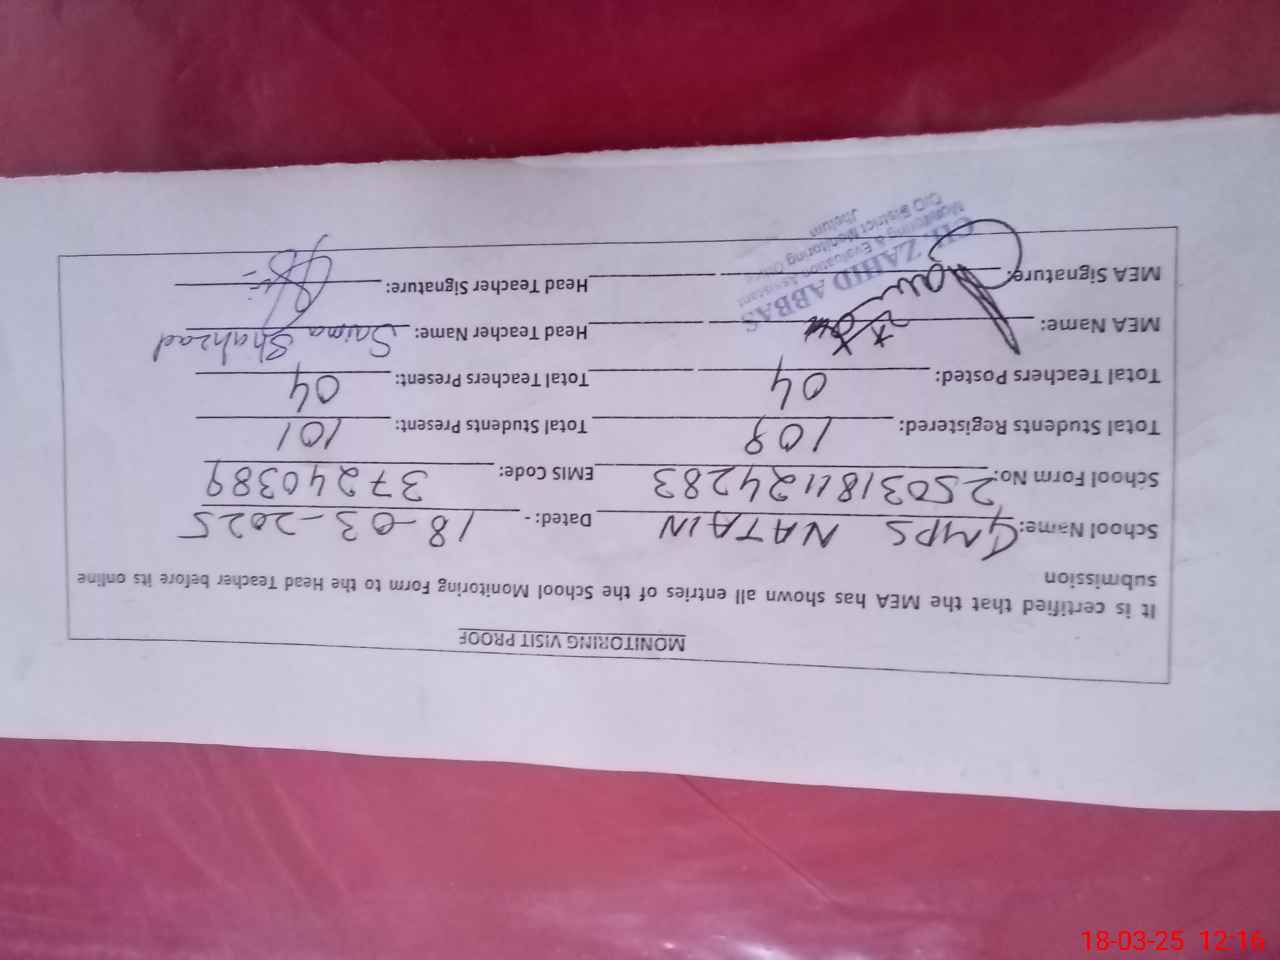 MONITORING VISIT PROOF
It is certified that the MEA has shown all entries of the School Monitoring Form to the Head Teacher before its online
submission
School Name: GMPS NATAIN Dated: - 18-03-2025
School Form No: 2503181124283 EMIS Code: 37240389
Total Students Registered: 109 Total Students Present: 101
Total Teachers Posted: 04 Total Teachers Present: 04
MEA Name: Head Teacher Name: Saima Shahzad
MEA Signature: Head Teacher Signature:
CH. ZAHID ABBAS
Monitoring & Evaluation Assistant
O/O District Monitoring Office
Jhelum
18-03-25 12:16